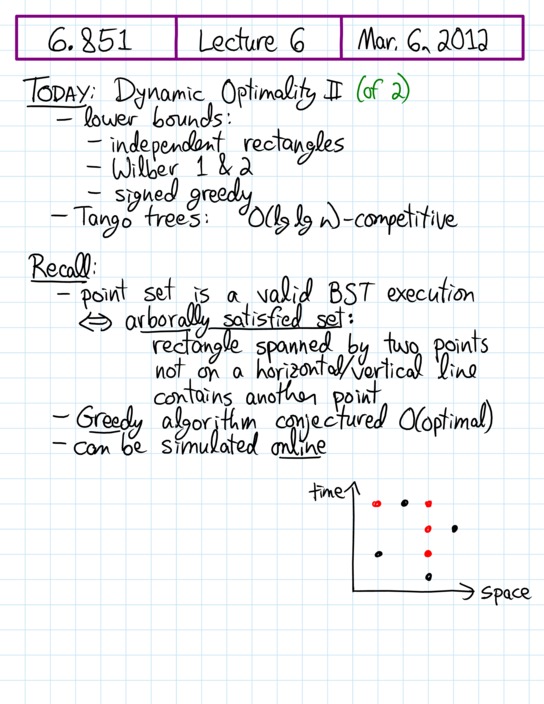 6.851 Lecture 6 Mar. 6, 2012
TODAY: Dynamic Optimality II (of 2)
– lower bounds:
– independent rectangles
– Wilber 1 & 2
– signed greedy
– Tango trees: O(lg lg n)-competitive
Recall:
– point set is a valid BST execution
⇔ arborally satisfied set:
rectangle spanned by two points
not on a horizontal/vertical line
contains another point
– Greedy algorithm conjectured O(optimal)
– can be simulated online
time
space